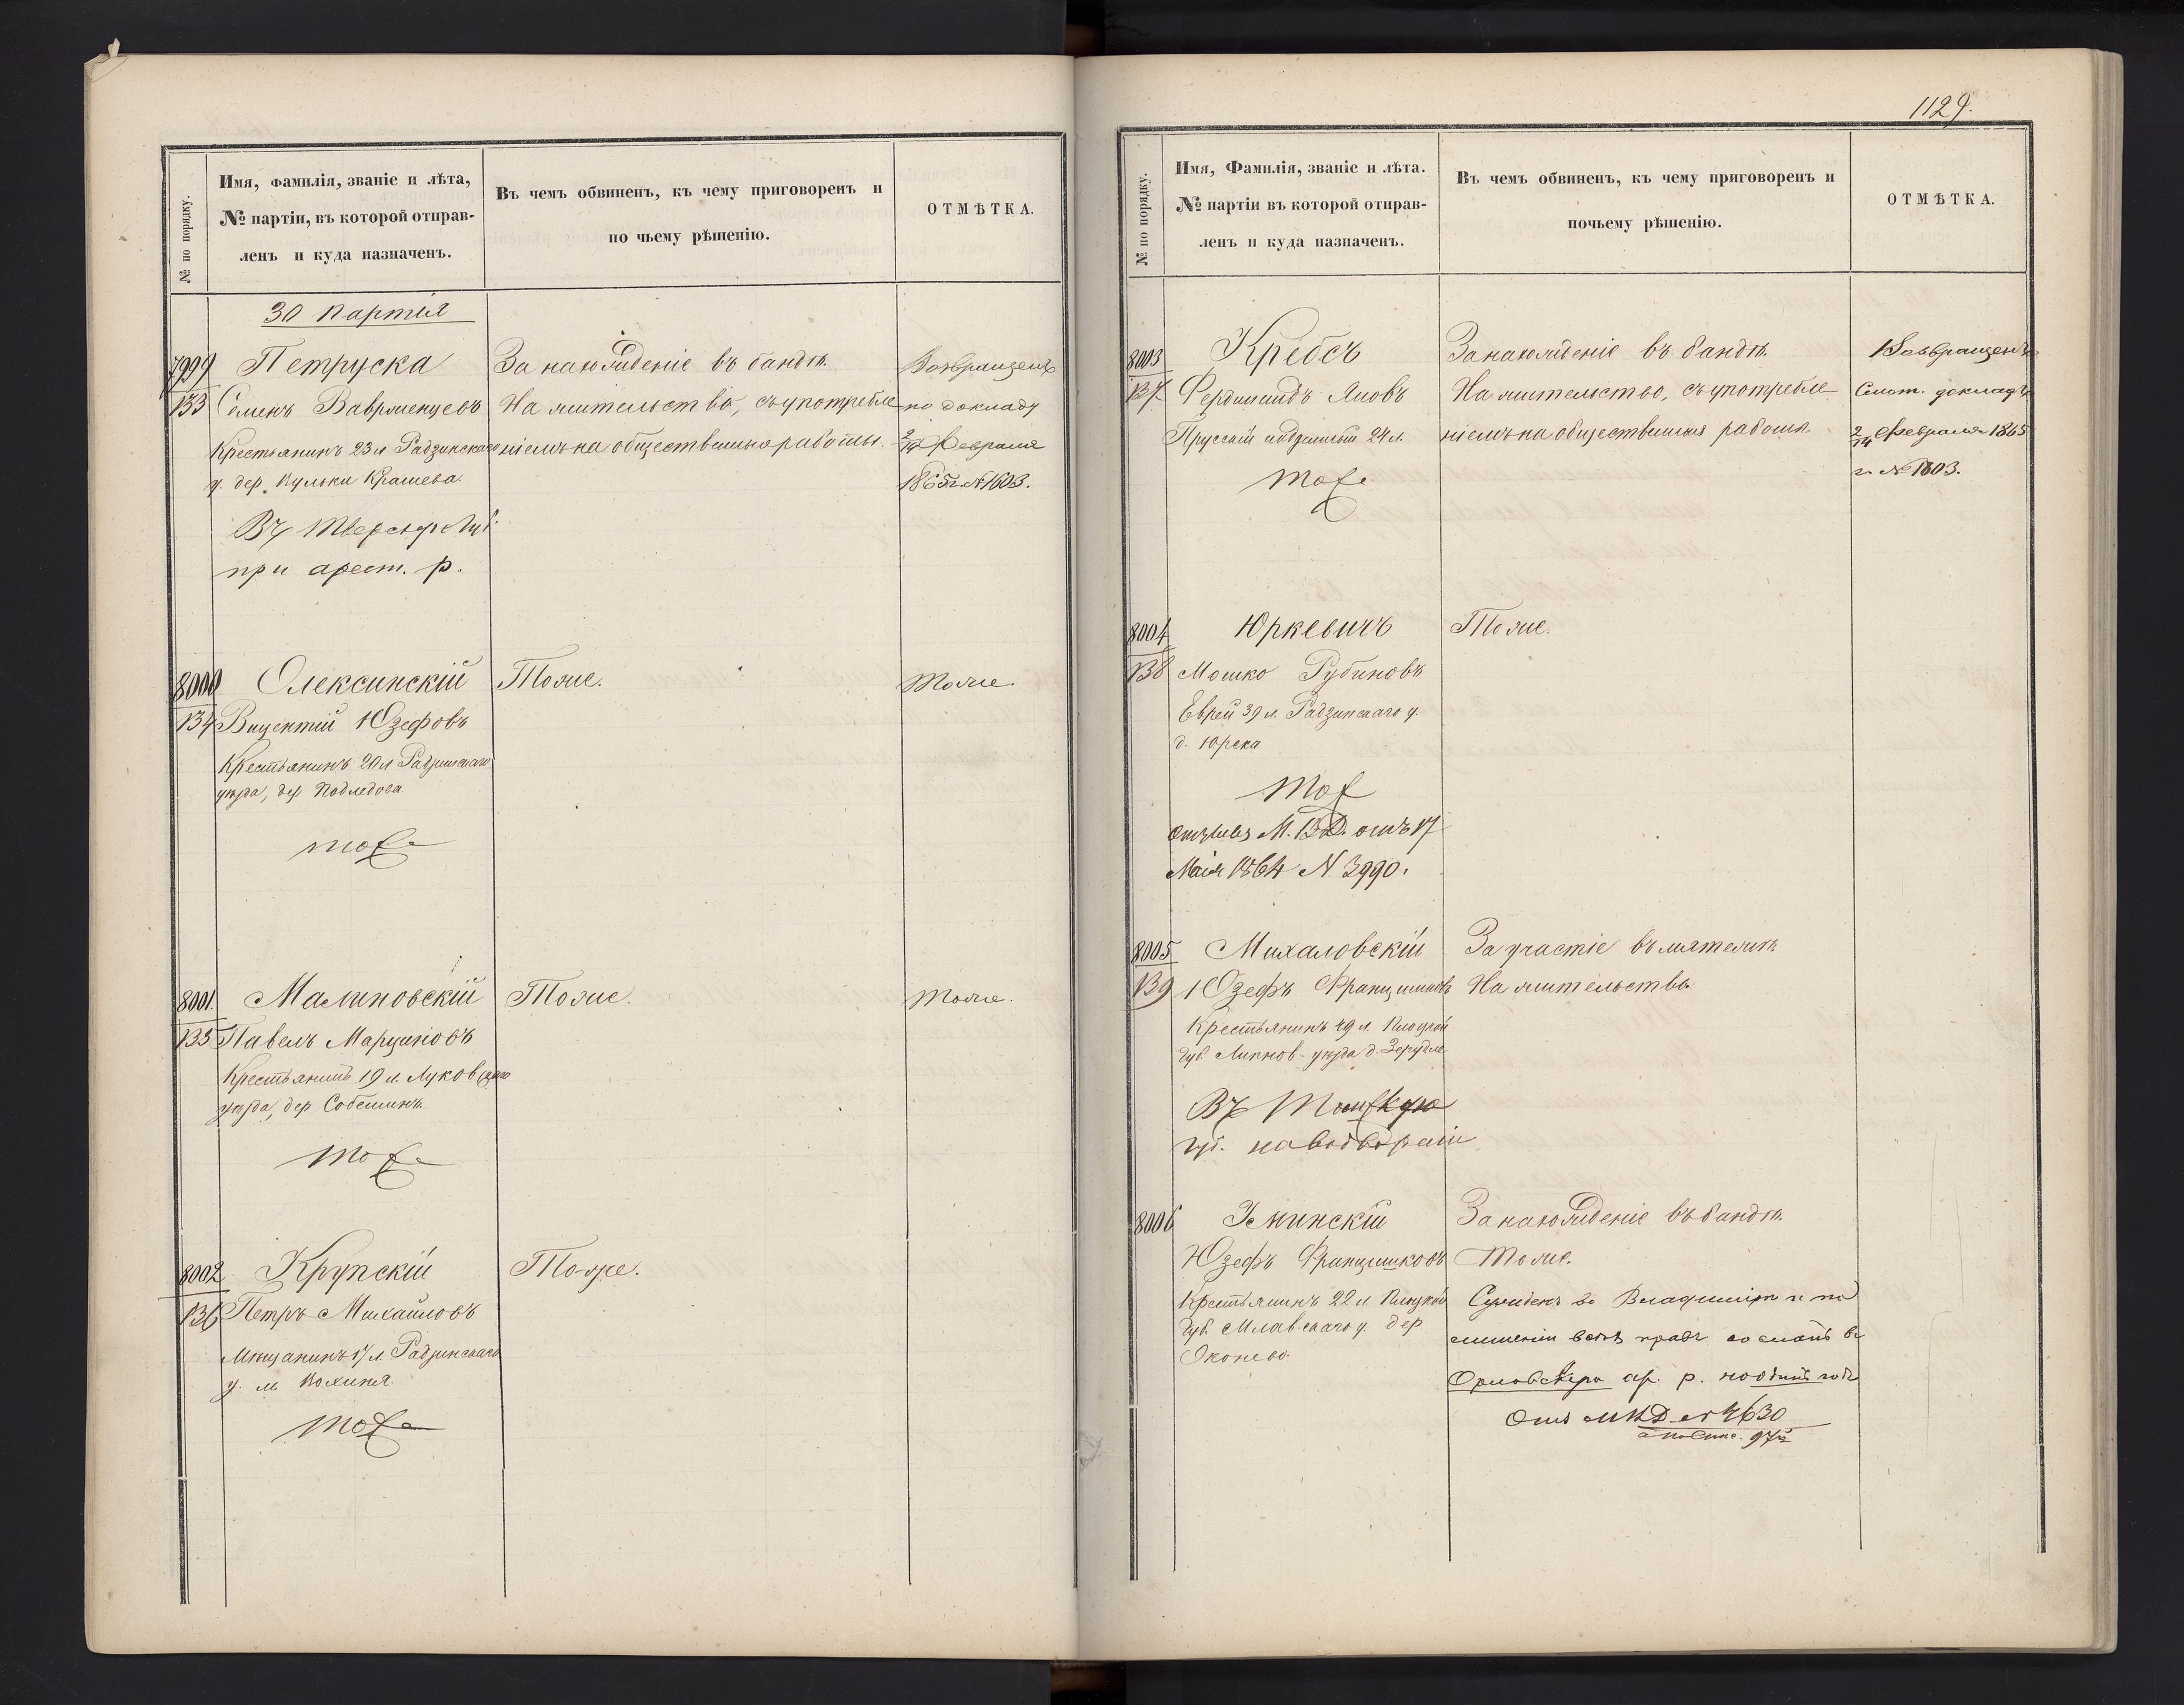 № по порядку.
Имя, фамилія, званіе и лѣта,
№ партіи, въ которой отправ-
ленъ и куда назначенъ.
Въ чемъ обвиненъ, къ чему приговоренъ и
по чьему рѣшенію.
ОТМѢТКА.
30 партія
7999
133
Петруска
Семенъ Ваврженцевъ
Крестьянинъ 23 л Радзинскаго
у. дер. Вульки Крашева.
Въ Тверскую губ.
при арест. р.
За нахожденіе въ бандѣ.
На жительство, съ употребле
ніемъ на общественныя работы.
Возвращенъ
по докладу
2/14 Февраля
1865 г. № 1603.
8000
134
Олексинскій
Вицентій Юзефовъ
Крестьянинъ 20 л Радзинскаго
уѣзда, дер Подледова.
тоже
Тоже.
Тоже.
8001.
135
Малиновскій
Павелъ Марциновъ
Крестьянинъ 19 л. Луковскаго
уѣзда, дер Собешинъ.
тоже
Тоже.
Тоже.
8002
136
Крупскій
Петръ Михайловъ
Мѣщанинъ 17 л. Радзинскаго
у. м. Вохиня
тоже
Тоже.
1129.
№ по порядку.
Имя, Фамилія, званіе и лѣта.
№ партіи въ которой отправ-
ленъ и куда назначенъ.
Въ чемъ обвиненъ, къ чему приговоренъ и
почьему рѣшенію.
ОТМѢТКА.
8003
137
Кребсъ
Фердинандъ Яновъ
Прусскій подданный 24 л.
тоже
За нахожденіе въ бандѣ.
На жительство, съ употребле
ніемъ на общественныя работы.
Возвращенъ
Смот. докладъ
2/14 Февраля 1865
г. № 1603.
8004
138
Юркевичъ
Мошко Рубиновъ
Еврей 39 л. Радзинскаго у.
д. Юрека
тоже
отзывъ М. В. Д. отъ 17
Мая 1864 N 3990.
Тоже.
8005
139
Михаловскій
Юзефъ Францишковъ
Крестьянинъ 49 л. Плоцкой
губ. Липнов. уѣзда д.
Въ Томскую
губ. на водвореніе
За участіе въ мятежѣ.
На жительство
8006
Юзефъ Францишковъ
Крестьянинъ 22 л. Плоцкой
губ. Млавскаго у. дер
Оконево.
За нахожденіе въ бандѣ.
Тоже.
Сужденъ во Владимірѣ и по
лишеніи всѣхъ правъ сосланъ въ
Орловскую ар. р. на одинъ годъ
Отз МВД № 4630